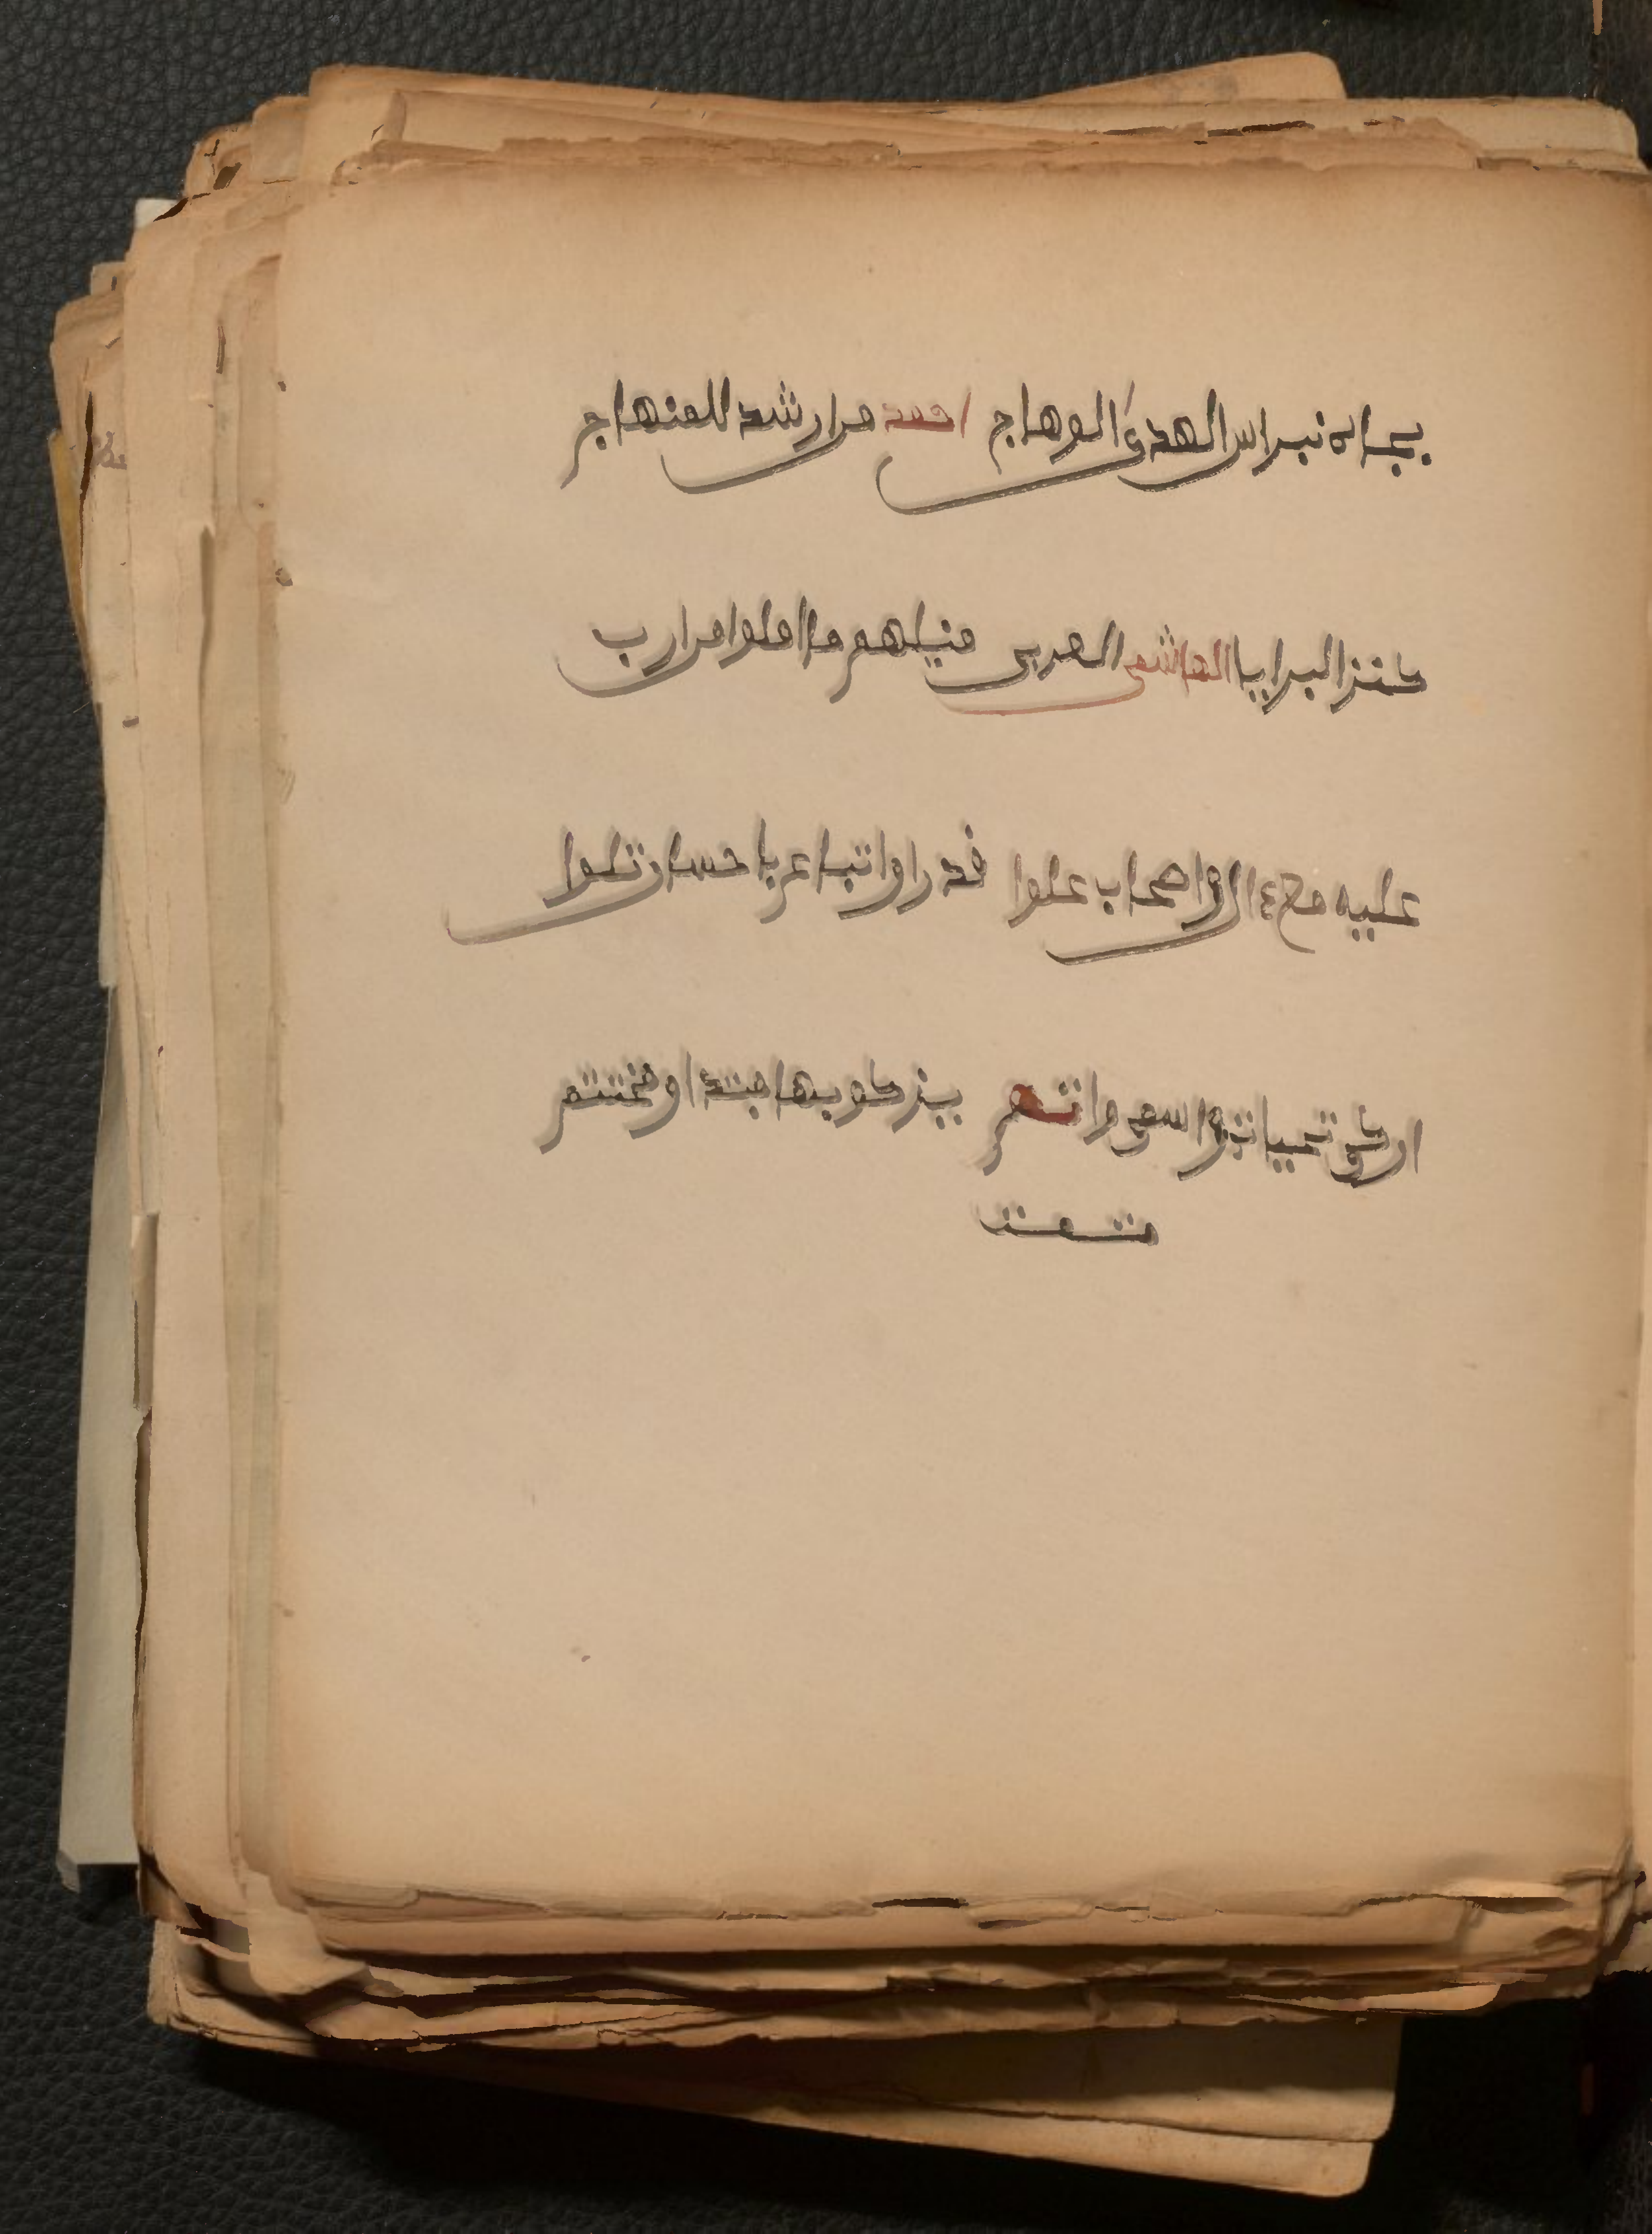 بجاه نبراس الهدى الوهاج احمد من ارشد للمنهاج
كنز البرايا الهاشمي العربي منيلهم ما املوا من ارب
عليه مع ءال واصحاب علوا قدرا واتباع باحسان تلوا
ازكى تحيات واسمى ما تم يزكو بها مبتدا ومختتم
تمت